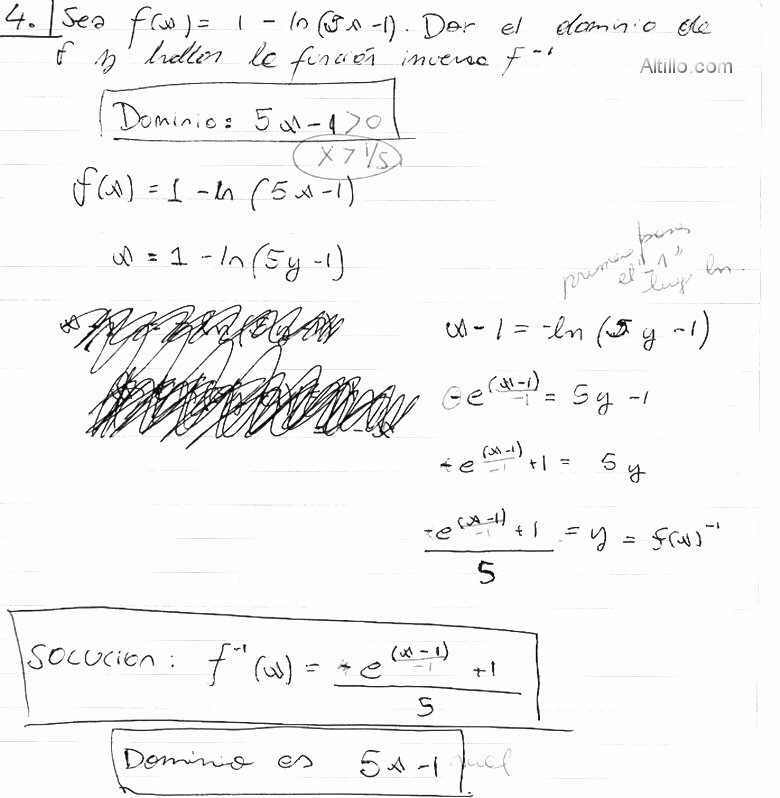 4. Sea f(x) = 1 - ln(5x-1). Dar el dominio de
f y hallar la función inversa f⁻¹
Altillo.com
Dominio: 5x-1>0
x > 1/5
f(x) = 1 - ln (5x-1)
x = 1 - ln(5y-1)
primero
el "1"
luego ln.
x-1 = -ln (5y-1)
-e^((x-1)/-1) = 5y-1
-e^((x-1)/-1) +1 = 5y
(-e^((x-1)/-1) +1)/5 = y = f(x)⁻¹
SOLUCION: f⁻¹(x) = (-e^((x-1)/-1) +1)/5
Dominio es 5x-1